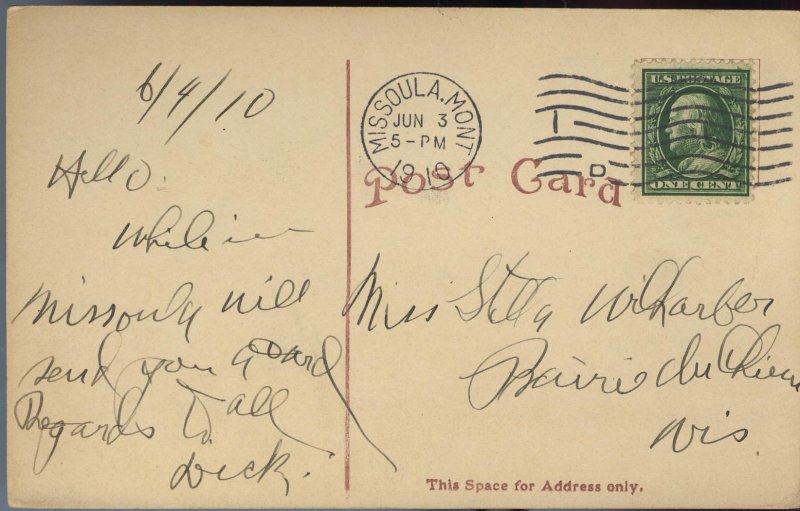 6/4/10
Hello.
While in
Missoula will
send you a card
Regards to all
Dick.
MISSOULA, MONT.
JUN 3
5-PM
1910
D
U.S. POSTAGE
ONE CENT
Post Card
Miss Stella
Prairie du Chien
Wis
This Space for Address only.